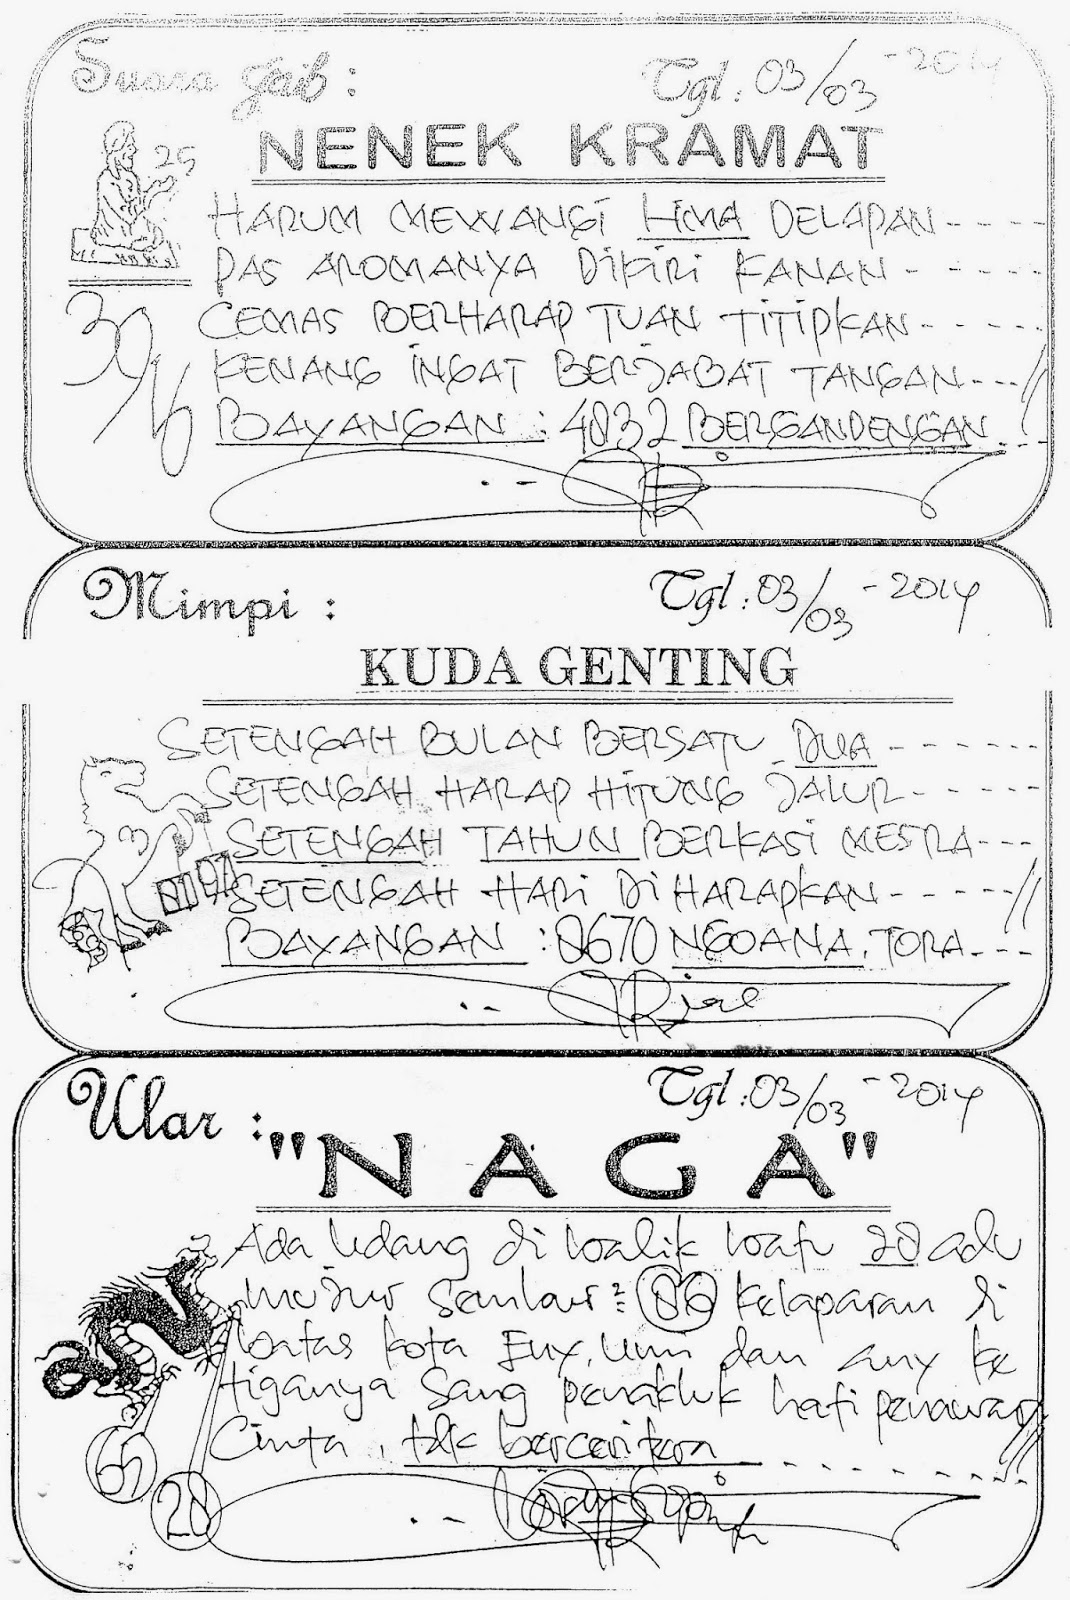 Suara Gaib :
Tgl : 03/03 - 2014
NENEK KRAMAT
25
HARUM MEWANGI LIMA DELAPAN - - - -
PAS AROMANYA DIKIRI KANAN - - - -
CEMAS BERHARAP TUAN TITIPKAN - - - -
KENANG INGAT BERJABAT TANGAN - - - //
BAYANGAN : 4832 BERGANDENGAN - - -
Mimpi :
Tgl : 03/03 - 2014
KUDA GENTING
SETENGAH BULAN BERSATU DUA - - - - - -
SETENGAH HARAP HITUNG JALUR - - - - -
SETENGAH TAHUN BERKASI MESRA - - -
SETENGAH HARI DI HARAPKAN - - - - - //
BAYANGAN : 0670 NGOANA, TORA - - -
Ular :
Tgl : 03/03 - 2014
"NAGA"
Ada udang di balik batu 28 adu
kelaparan di
batas kota Eny, Umi dan Any ke
tiganya Sang penakluk hati penawar
Cinta, tdk berceritera - - - - - - //
65
28